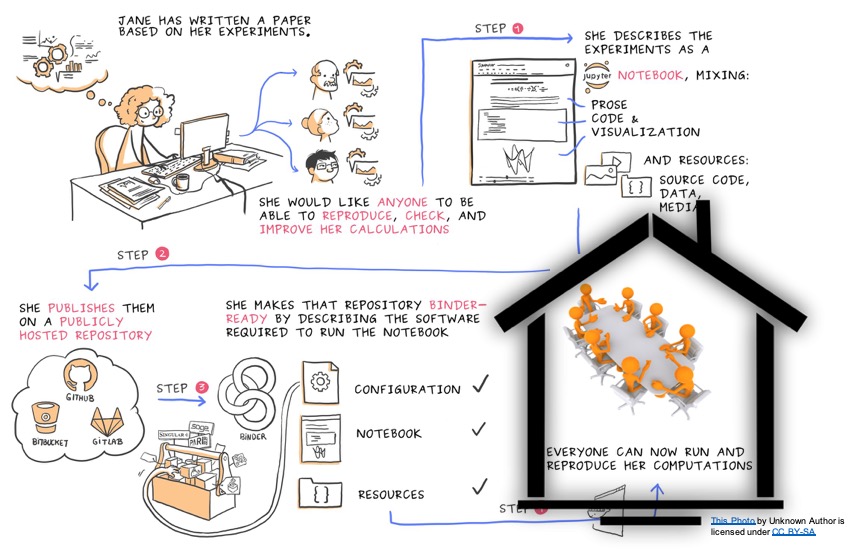 JANE HAS WRITTEN A PAPER
BASED ON HER EXPERIMENTS.
SHE WOULD LIKE ANYONE TO BE
ABLE TO REPRODUCE, CHECK, AND
IMPROVE HER CALCULATIONS
STEP 1
SHE DESCRIBES THE
EXPERIMENTS AS A
jupyter
NOTEBOOK, MIXING:
PROSE
CODE &
VISUALIZATION
AND RESOURCES:
SOURCE CODE,
DATA,
MEDIA
STEP 2
SHE PUBLISHES THEM
ON A PUBLICLY
HOSTED REPOSITORY
GITHUB
BITBUCKET
GITLAB
STEP 3
SHE MAKES THAT REPOSITORY BINDER-
READY BY DESCRIBING THE SOFTWARE
REQUIRED TO RUN THE NOTEBOOK
BINDER
SINGULAR
sage
PARI
CONFIGURATION
NOTEBOOK
RESOURCES
STEP
EVERYONE CAN NOW RUN AND
REPRODUCE HER COMPUTATIONS
This Photo by Unknown Author is
licensed under CC BY-SA